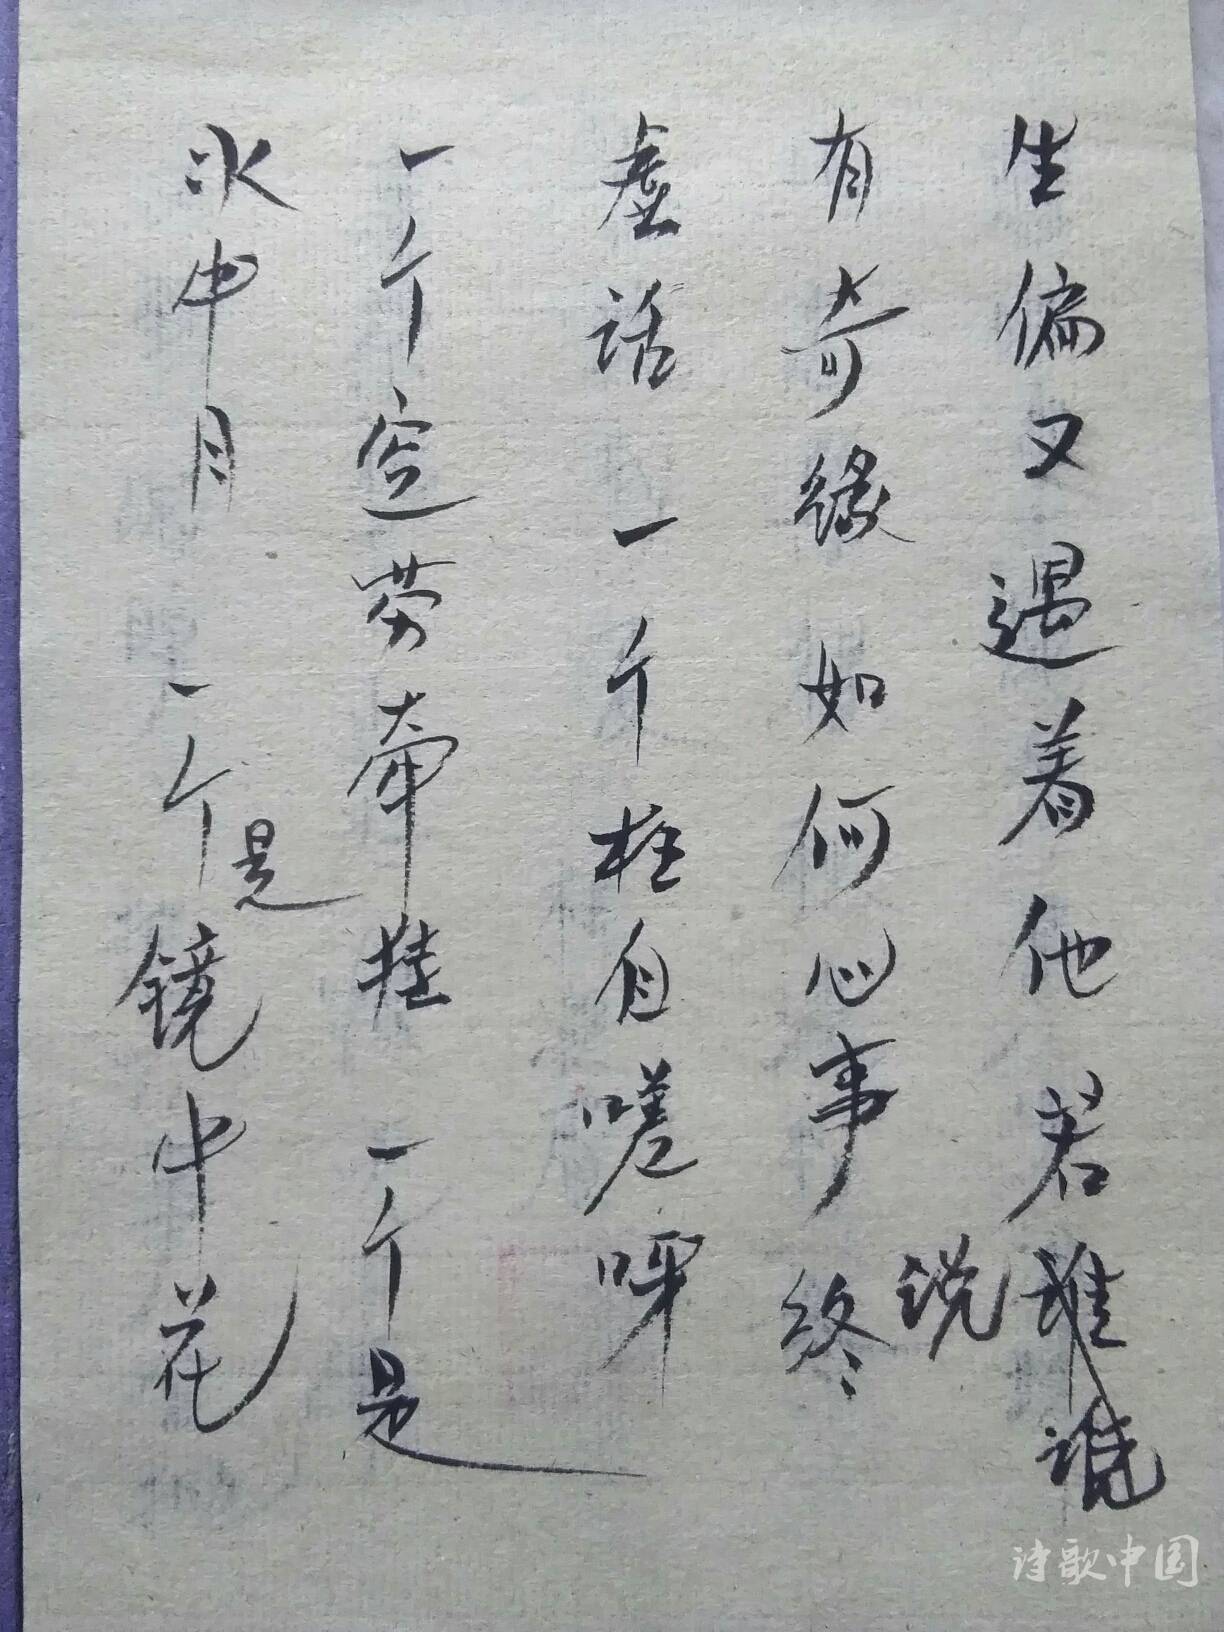 生偏又遇着他若说
有奇缘如何心事终
虚话一个枉自嗟呀
一个空劳牵挂一个是
水中月一个是镜中花
诗歌中国